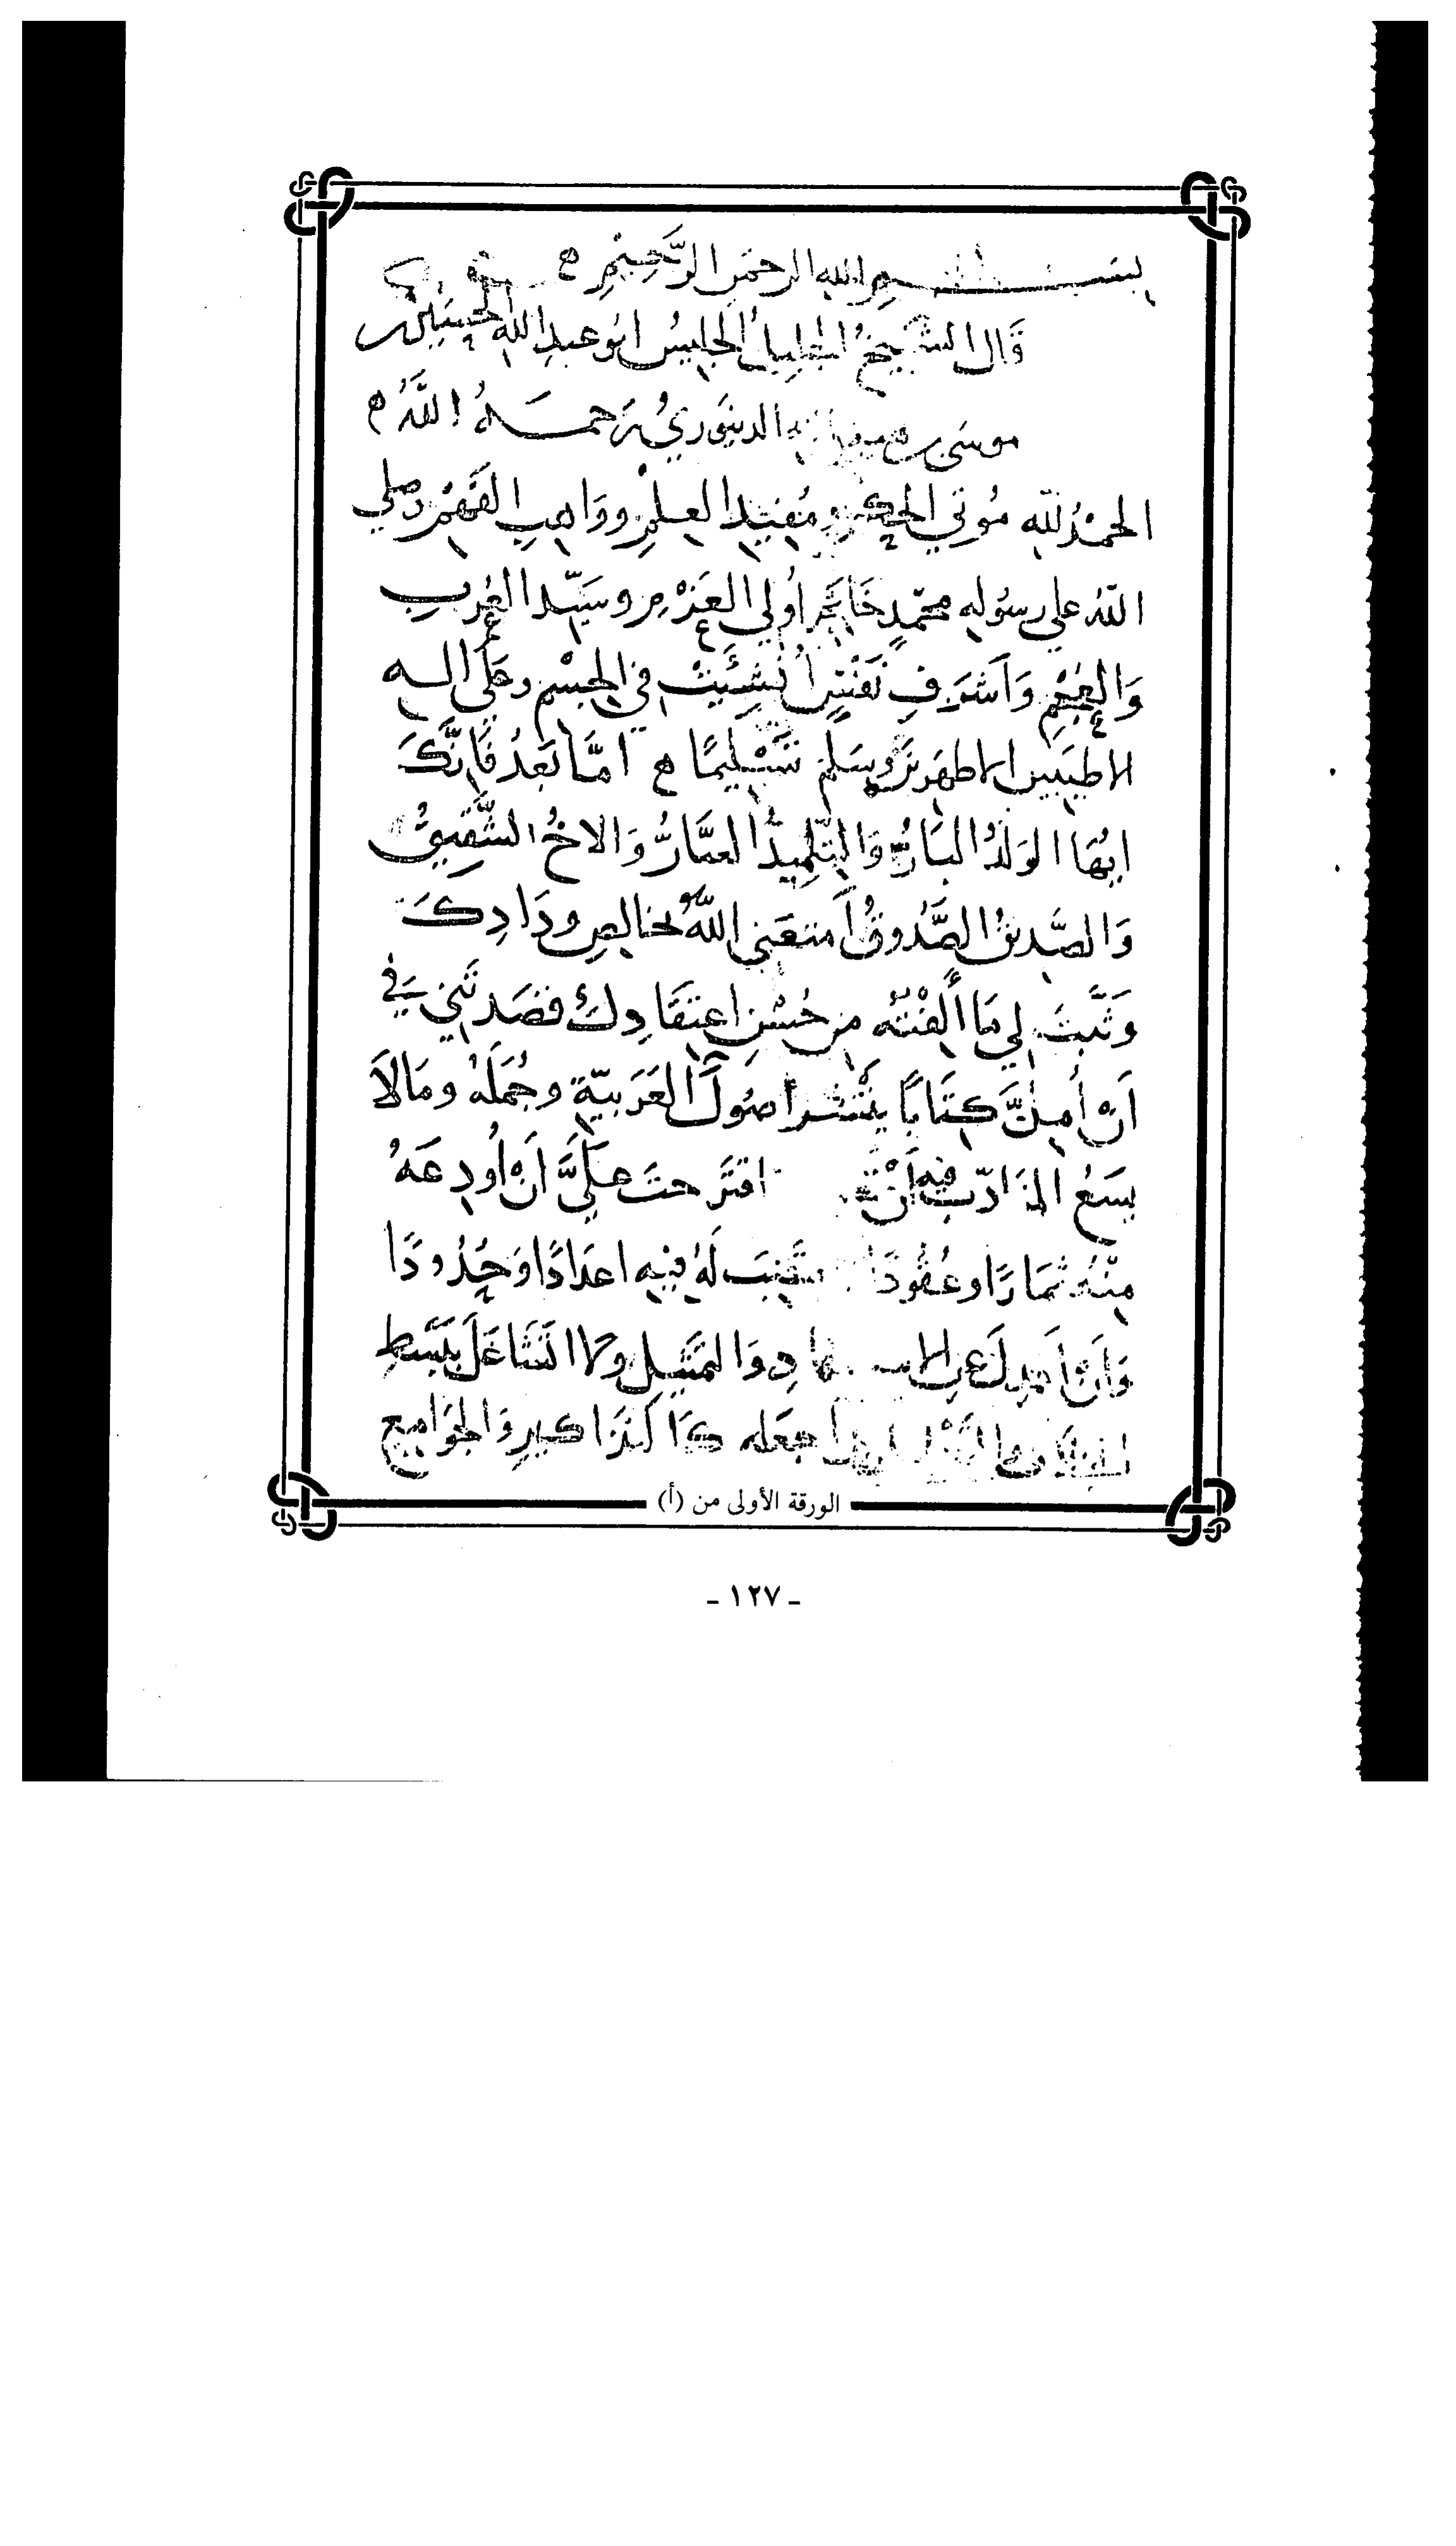 بسم الله الرحمن الرَّحِيْمِ
قَال الشَّيْخُ الجَلِيلُ الجَلِيسُ ابُو عبدِ اللهِ الحُسَيْنُ بن
موسَى بن الدينَوَرِيُّ رَحمَهُ اللَّهُ
الحَمْدُ للهِ مُوتي الحِكَمِ ومُفِيْدِ العِلْمِ ووَاهِبِ الفَهْمِ وصلى
اللهُ على رسُولِه محمّدٍ خَاتَمِ أُولي العَزْمِ وسَيِّدِ العُربِ
وَالعُجْمِ وَأَشرَفِ نَفْسٍ أُنْشِئَتْ في الجِسْمِ وعَلَى اله
الاطيَبِين الاطهَرِينَ وسَلم تَسْلِيمًا امَّا بَعدُ فَإِنَّكَ
ايُّها الوَلَدُ البَارُّ وَالتِّلمِيذُ العمَّارُ وَالاخُ الشَّقِيقُ
وَالصَّدِيقُ الصَّدُوقُ أَمتَعَنِي اللَّهُ بخالِصِ ودَادِكَ
وَثَبَّتَ لي مَا أَلِفْتُهُ من حُسْنِ اعتِقَادِكَ قصَدتَنِي في
أَنْ أُمِلَّ كِتَابًا يَنْتَشِرُ أُصُولَ العَرَبيّةِ وجُمَلَهُ ومَالاَ
يسَعُ المتَأدِّبَ فيه أَنْ اقتَرَحتَ عَلَيَّ أَنْ أُودِعَهُ
مِنْهُ ثمَارًا وعُقُودًا لَهُ فيه اعدَادًا وَحُدُودًا
وَأَنْ أَعدِلَ عن وَالمَثَلِ ولا اتَشَاغَلَ بِبَسْطِ
أَجعَله كَالتذَاكيرِ وَالجَوَامِعِ
الورقة الأولى من (أ)
- ١٢٧ -